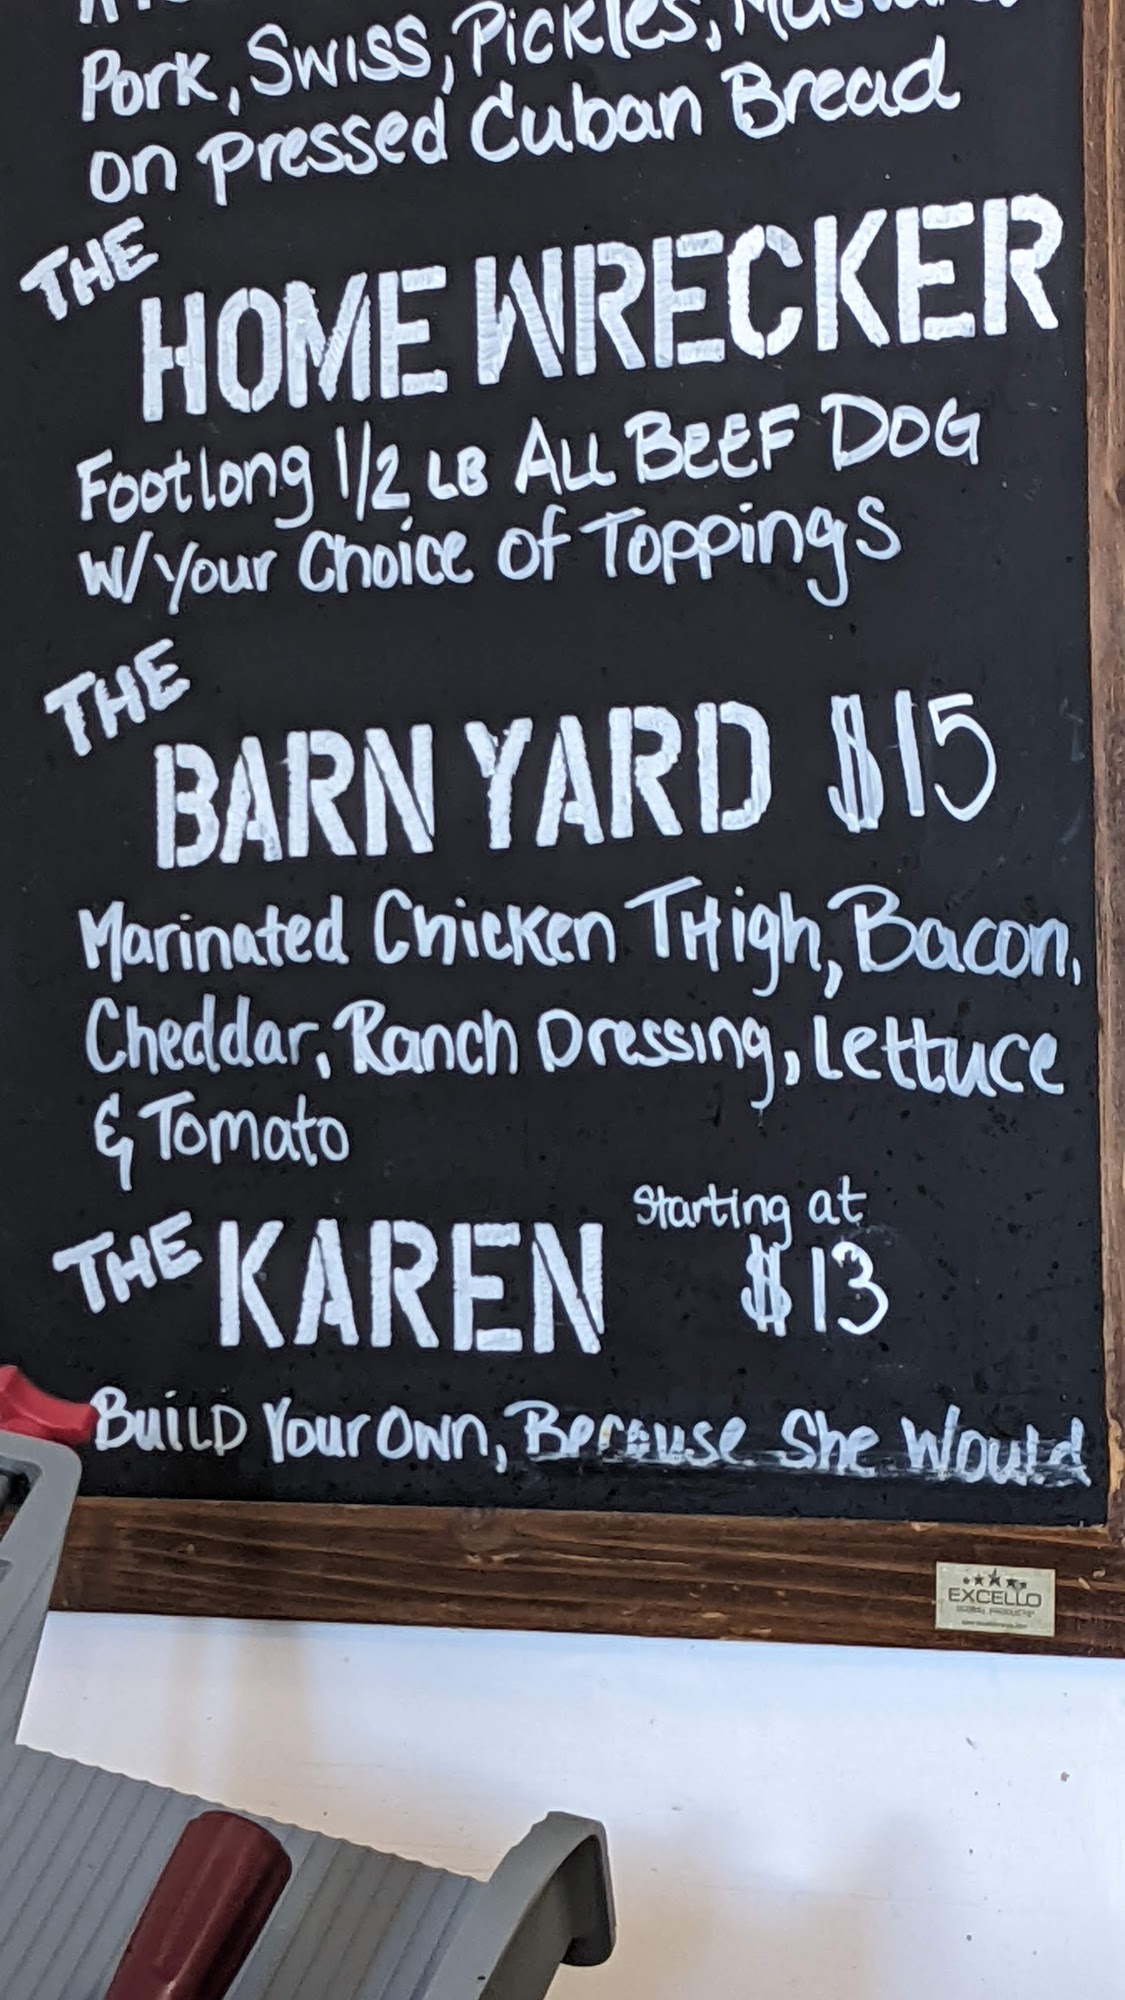 Pork, Swiss, Pickles,
on pressed Cuban Bread
THE
HOME WRECKER
Footlong 1/2 LB All BEEF DOG
W/Your Choice of Toppings
THE
BARN YARD $15
Marinated Chicken THigh, Bacon,
Cheddar, Ranch Dressing, Lettuce
& Tomato
THE KAREN Starting at
$13
BuiLD Your Own, Because She Would
EXCELLO